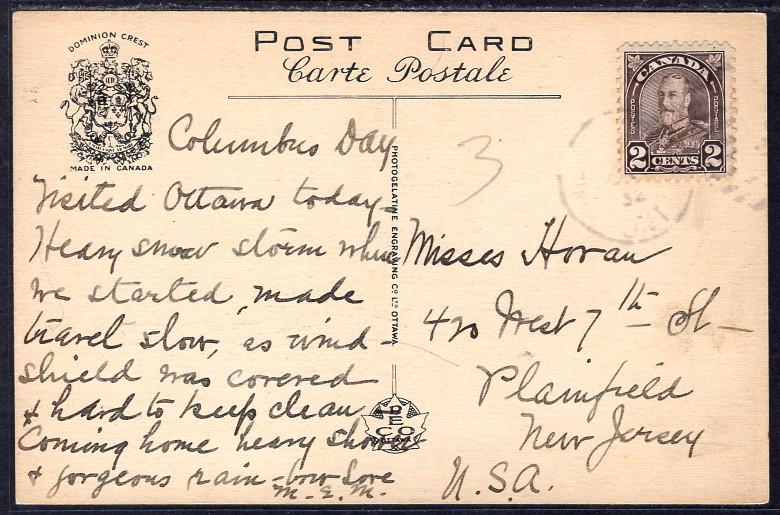 DOMINION CREST
MADE IN CANADA
POST CARD
Carte Postale
CANADA
POSTES POSTAGE
2 CENTS 2
32
3
Columbus Day
Visited Ottawa today –
Heavy snow storm when
we started, made
travel slow, as wind-
shield was covered
& hard to keep clean
Coming home heavy shower
& gorgeous rain-bow Love
M.E.M.
PHOTOGELATINE ENGRAVING CO. LTD. OTTAWA
PECO
OTTAWA
Misses Horan
420 West 7th St –
Plainfield
New Jersey
U.S.A.